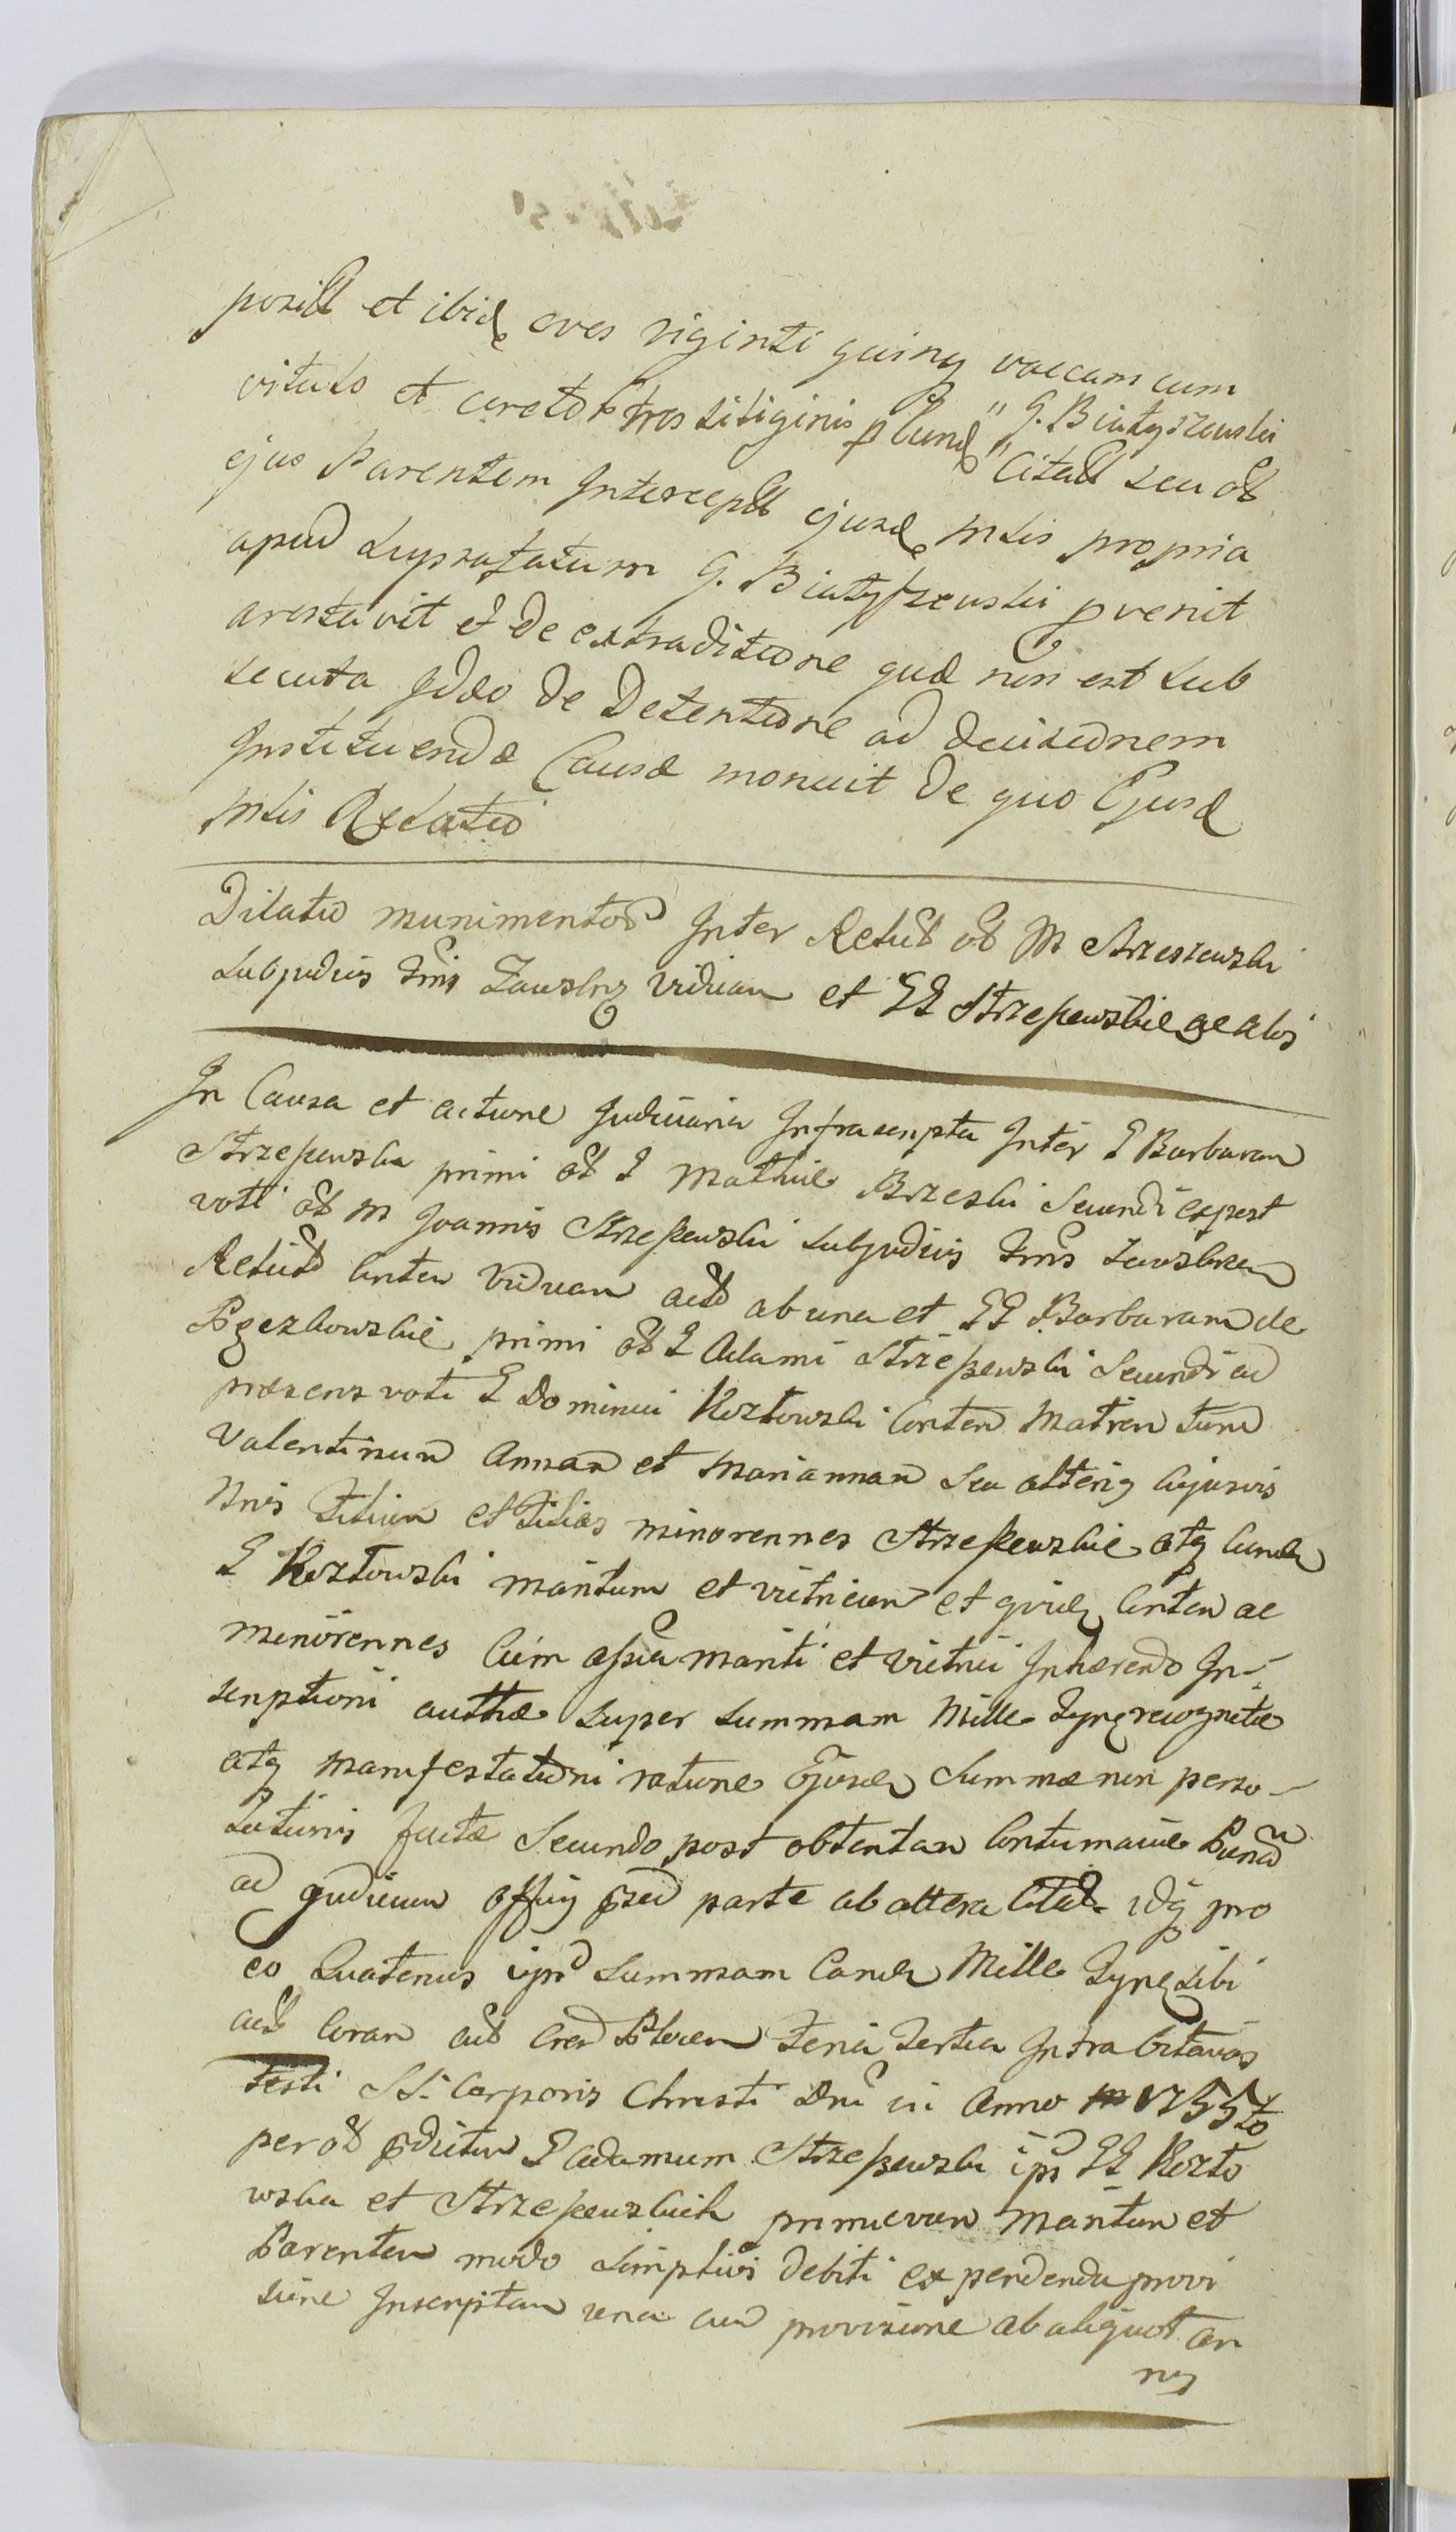 et ibid oves viginti quinq vaccam cum
vitulo et tres siliginis G. Białyszewski
ejus Parentem Intercept ejusd Mtis propria
apud Suprafatum G. Białyszewski pvenit
arestavit et de extraditione quæ non est sub
secuta Ideo de Detentione ad decisionem
Instituendæ Causæ monuit De quo Ejusd
Mtis Relatio
Dilatio munimentor Inter Relict ol M Strzeszewski
Subjudicis Trris Zawskrz viduam et GG Strzeszewskie
In Causa et actione Judiciaria Infrascripta Inter G Barbaram
Strzeszewska primi ol G Mathiæ Brzeski Secundi expost
voti ol M Joannis Strzeszewski Subjudicis Trris Zawskrzen
Relict Conten Viduam act ab una et GG Barbaram de
primi ol G Adami Strzeszewski Secundi ad
præsens voti G Dominici Kozłowski Conten Matrem tum
Valentinum Annam et Mariannam seu alterig cujusvis
Nnis Filium et Filias minorennes Strzeszewskie atq eund
G Kozłowski maritum et vitricum et quid Conten ac
minorennes Cum assia mariti et vitrici Inhærendo In-
scriptioni authæ super summam Mille Tynf recognitæ
atq Manifestationi ratione Ejusd Summæ non perso-
lutionis factæ Secundo post obtentam Contumaciæ
ad Judicium offiy parte ab altera Citat idq pro
eo Quatenus ipsi Summam Cand Mille Tynf sibi
act Coram act Feria Tertia Intra Octavas
Festi SS. Corporis Christi Dni in Anno 1755to
per ol pdictum G Adamum Strzeszewski ips GG Kozło
wska et Strzeszewskich primævum Maritum et
Parentem modo simplicis debiti expendenda provi
sione Inscriptam una cum provisione ab aliquot an
nis